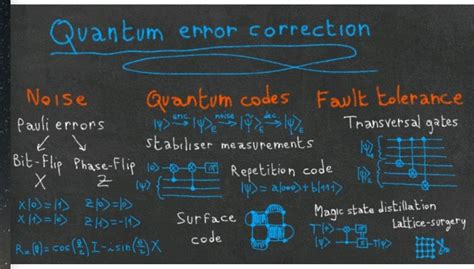 Quantum error correction
Noise
Pauli errors
Bit-Flip Phase-Flip
X Z
X|0⟩=|1⟩ Z|0⟩=|0⟩
X|1⟩=|0⟩ Z|1⟩=-|1⟩
Rₓ(θ)=cos(θ/2) I-i sin(θ/2) X
Quantum codes
|ψ⟩ enc→ |ψ⟩_E noise→ |ψ̃⟩_E dec→ |ψ⟩
stabiliser measurements
|0⟩
|ψ⟩
Repetition code
|ψ⟩=a|000⟩+b|111⟩
Surface
code
Fault tolerance
Transversal gates
|ψ⟩_L
|ψ⟩_L
Magic state distillation
Lattice-surgery
T|+⟩
|ψ⟩ T|ψ⟩